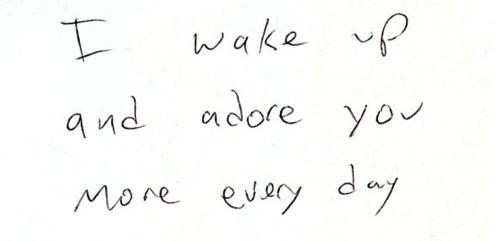 I wake up
and adore you
more every day